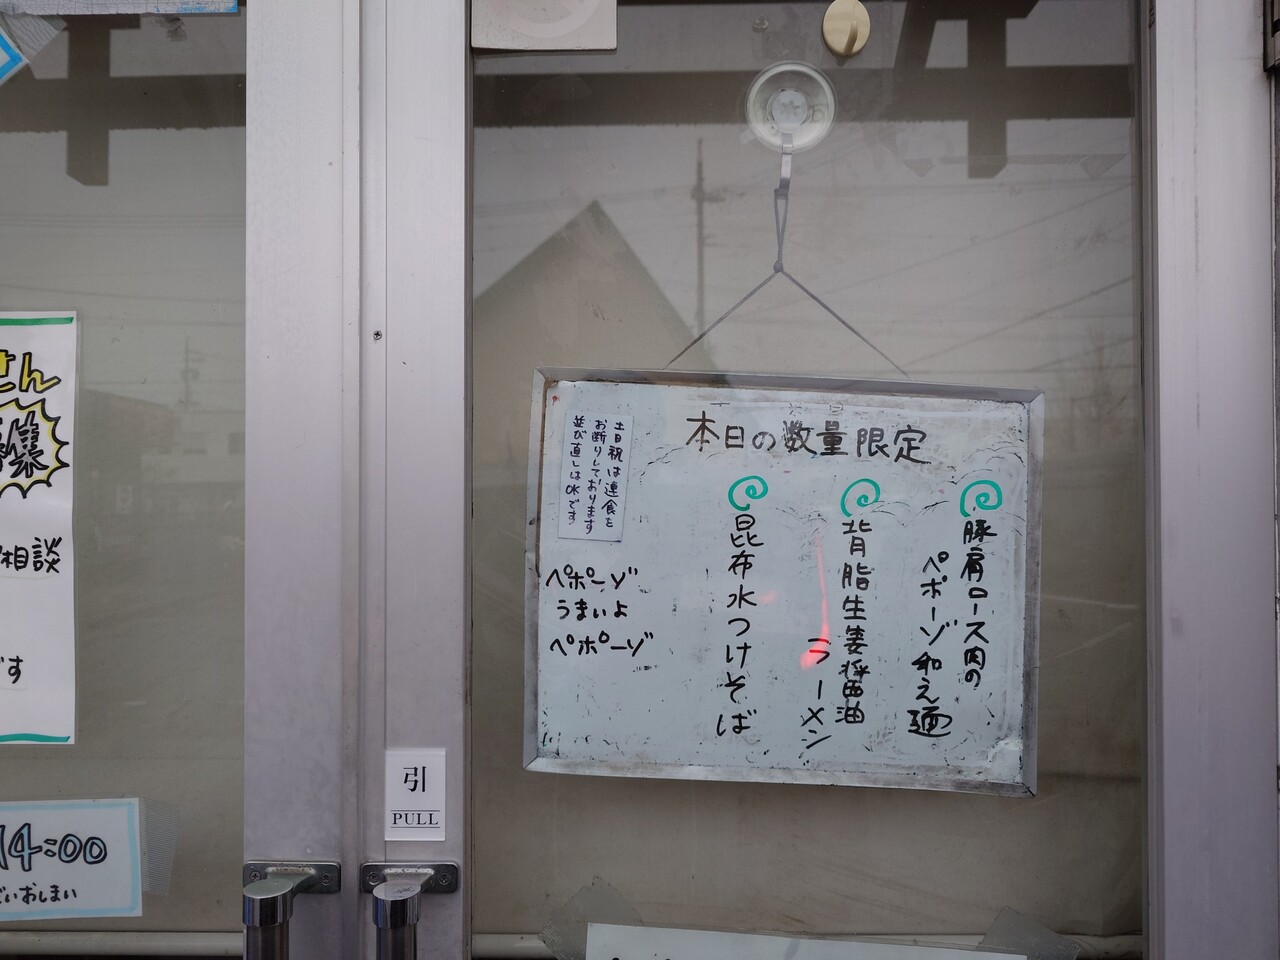 本日の数量限定
豚肩ロース肉の
ペポーゾ和え麺
背脂生姜醤油
ラーメン
昆布水つけそば
土日祝は連食を
お断りしております
並び直しはOKです
ペポーゾ
うまいよ
ペポーゾ
引
PULL
さん
募集
相談
です
14:00
おしまい